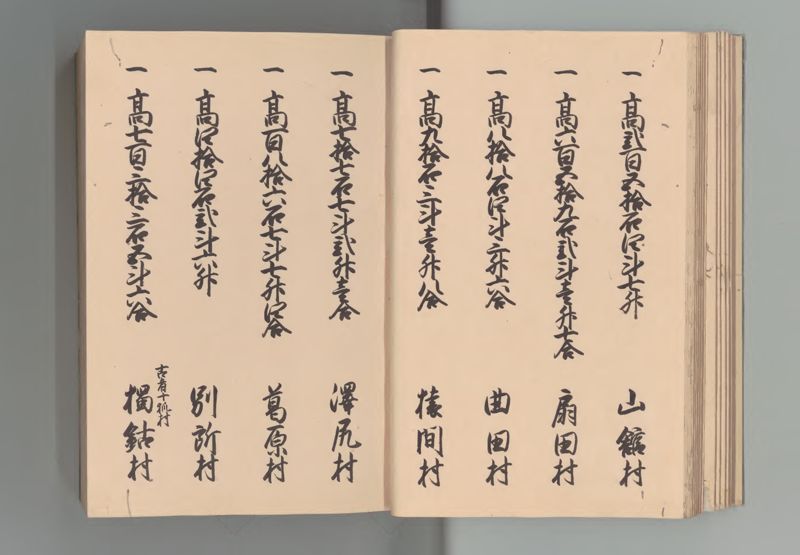 一 高弐百五拾石四斗七升 山舘村
一 高六百五拾九石弐斗壱升七合 扇田村
一 高八拾八石四斗三升六合 曲田村
一 高九拾石三斗壱升八合 猿間村
一 高七拾七石七斗弐升壱合 澤尻村
一 高百八拾六石七斗七升四合 葛原村
一 高四拾四石弐斗六升 別所村
一 高七百三拾三石五斗六合 獨鈷村
古者十狐村